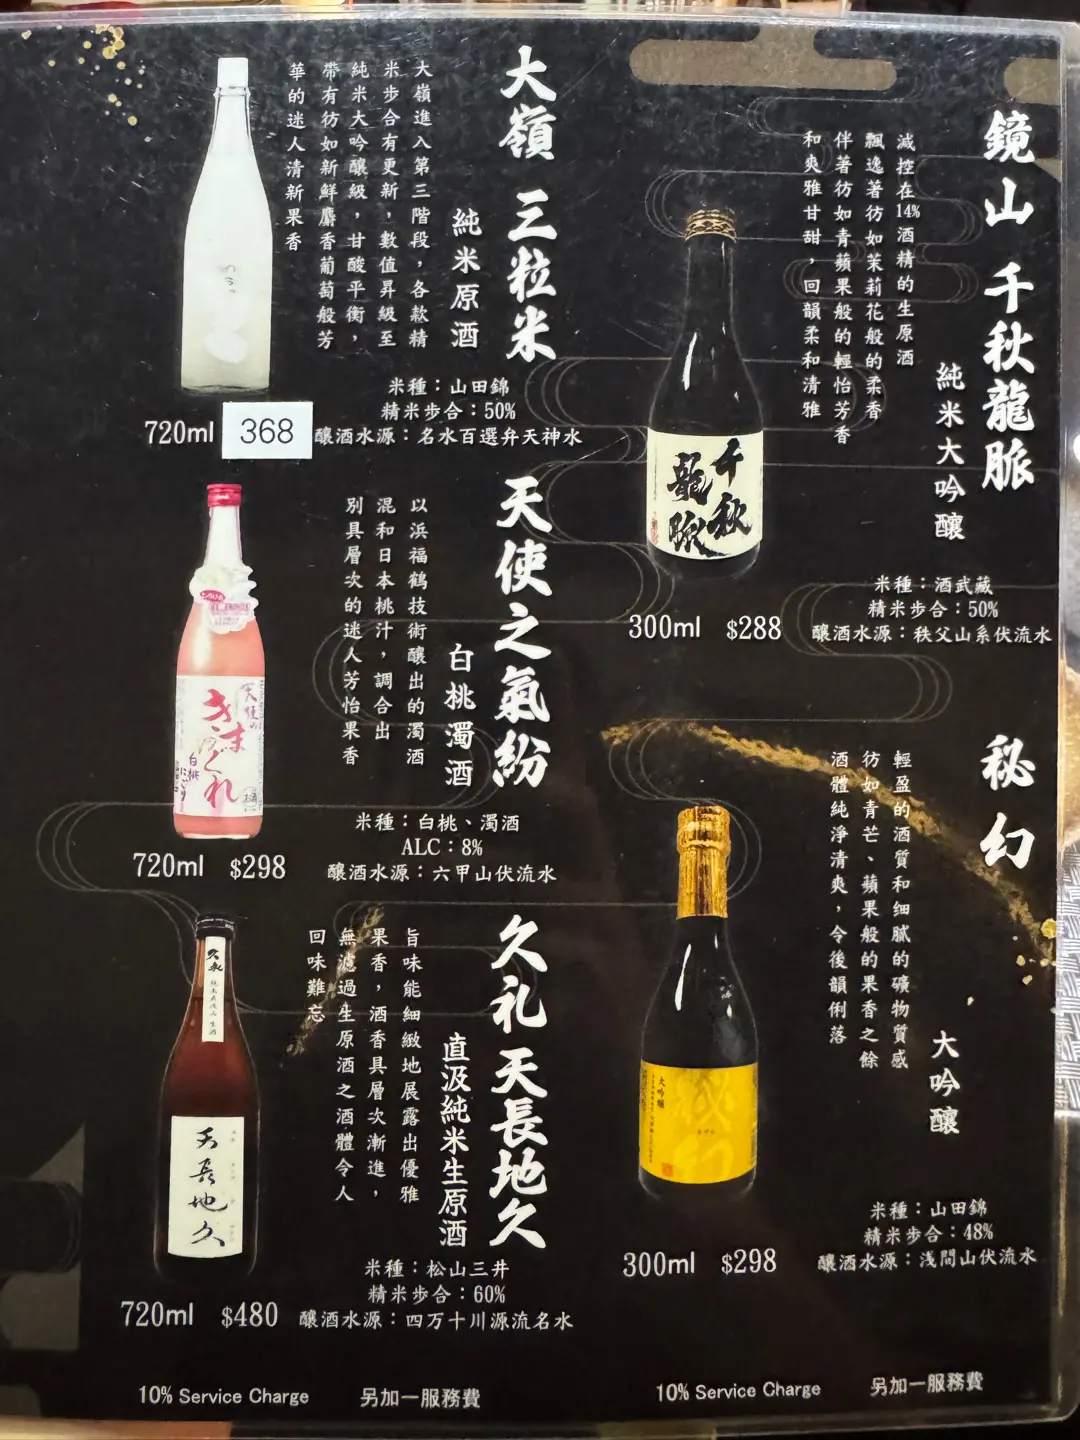 鏡山 千秋龍脈
純米大吟釀
減控在14%酒精的生原酒
飄逸著彷如茉莉花般的柔香
伴著彷如青蘋果般的輕怡芳香
和爽雅甘甜，回韻柔和清雅
千秋
龍脈
米種：酒武藏
精米步合：50%
釀酒水源：秩父山系伏流水
300ml $288
秘幻
大吟釀
輕盈的酒質和細膩的礦物質感
彷如青芒、蘋果般的果香之餘
酒體純淨清爽，令後韻俐落
大吟醸
米種：山田錦
精米步合：48%
釀酒水源：浅間山伏流水
300ml $298
10% Service Charge 另加一服務費
大嶺 三粒米
純米原酒
大嶺進入第三階段，各款精
米步合有更新，數值昇級至
純米大吟釀級，甘酸平衡，
帶有彷如新鮮麝香葡萄般芳
華的迷人清新果香
米種：山田錦
精米步合：50%
釀酒水源：名水百選弁天神水
720ml 368
天使之氣紛
白桃濁酒
以浜福鶴技術釀出的濁酒
混和日本桃汁，調合出
別具層次的迷人芳怡果香
天使の
きまぐれ
白桃
にごり
米種：白桃、濁酒
ALC：8%
釀酒水源：六甲山伏流水
720ml $298
久礼 天長地久
直汲純米生原酒
旨味能細緻地展露出優雅
果香，酒香具層次漸進，
無濾過生原酒之酒體令人
回味難忘
久礼
天長地久
米種：松山三井
精米步合：60%
釀酒水源：四万十川源流名水
720ml $480
10% Service Charge 另加一服務費